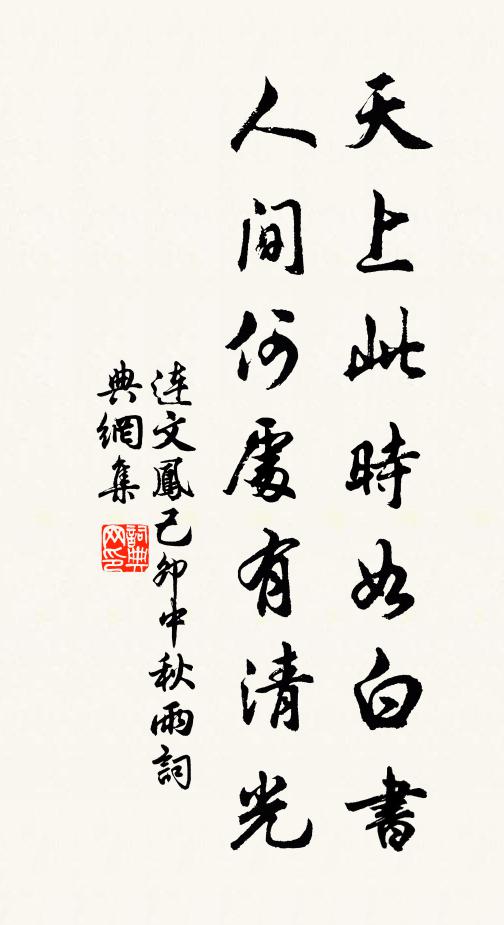 天上此時如白書
人間何處有清光
連文鳳己卯中秋雨詞
典網集
詞典網印